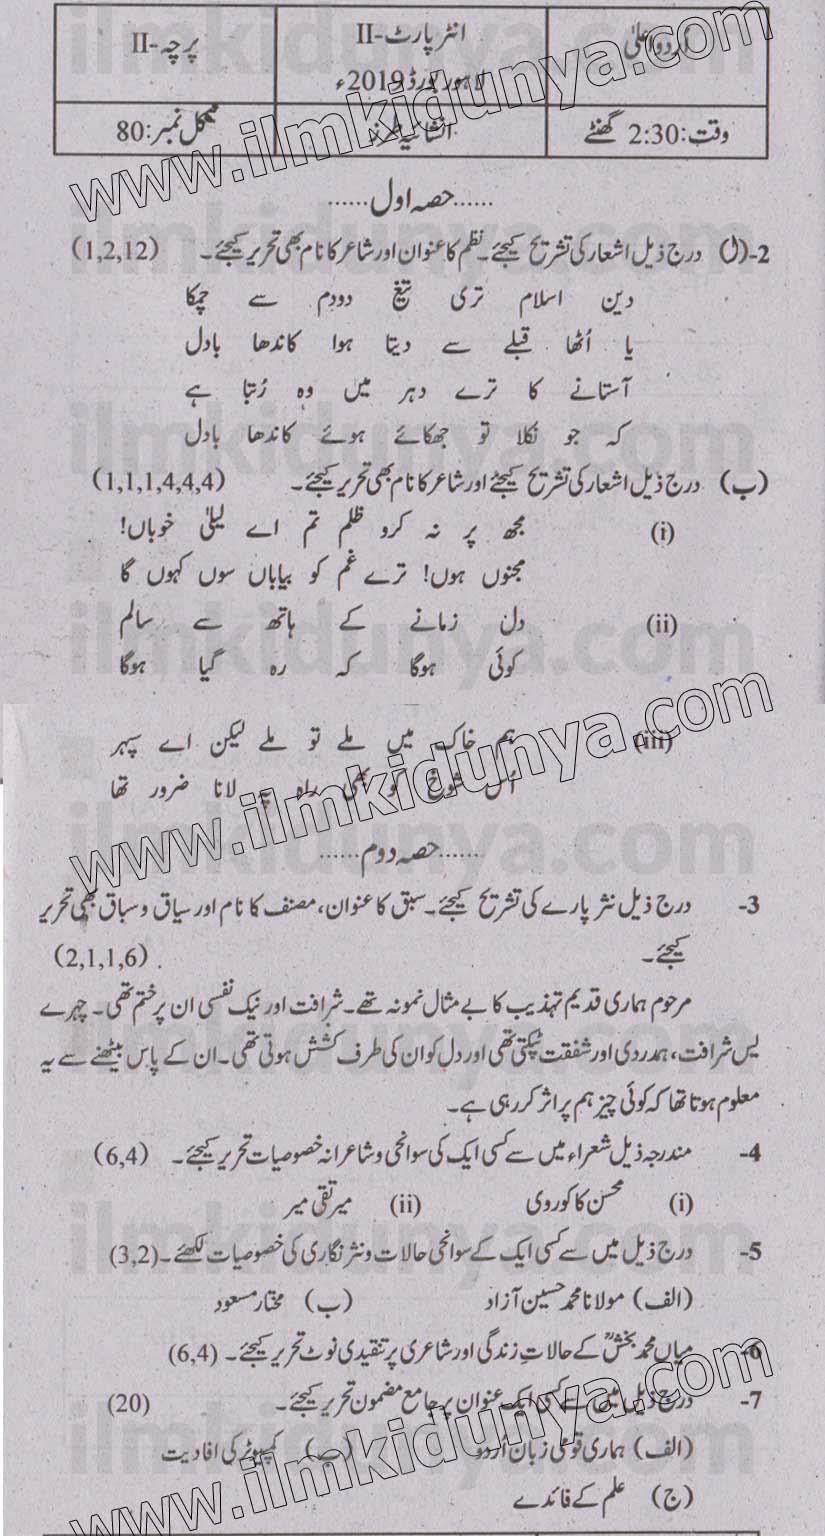 اُردو اعلیٰ
انٹر پارٹ-II
لاہور بورڈ 2019ء
پرچہ-II
وقت: 2:30 گھنٹے
انشائیہ طرز
کل نمبر: 80
......حصہ اول......
2-(ا) درج ذیل اشعار کی تشریح کیجئے۔ نظم کا عنوان اور شاعر کا نام بھی تحریر کیجئے۔ (1,2,12)
دین اسلام تری تیغ دودم سے چمکا
یا اُٹھا قبلے سے دیتا ہوا کاندھا بادل
آستانے کا ترے دہر میں وہ رُتبا ہے
کہ جو نکلا تو جھکائے ہوئے کاندھا بادل
(ب) درج ذیل اشعار کی تشریح کیجئے اور شاعر کا نام بھی تحریر کیجئے۔ (1,1,1,4,4,4)
(i) مجھ پر نہ کرو ظلم تم اے لیلیٰ خوباں!
مجنوں ہوں! ترے غم کو بیاباں سوں کہوں گا
(ii) دل زمانے کے ہاتھ سے سالم
کوئی ہوگا کہ رہ گیا ہوگا
(iii) ہم خاک میں ملے تو ملے لیکن اے سپہر
اُس شوخ کو بھی راہ پہ لانا ضرور تھا
......حصہ دوم......
3- درج ذیل نثر پارے کی تشریح کیجئے۔ سبق کا عنوان، مصنف کا نام اور سیاق و سباق بھی تحریر
کیجئے۔ (2,1,1,6)
مرحوم ہماری قدیم تہذیب کا بے مثال نمونہ تھے۔ شرافت اور نیک نفسی ان پر ختم تھی۔ چہرے
یس شرافت، ہمدردی اور شفقت ٹپکتی تھی اور دل کو ان کی طرف کشش ہوتی تھی۔ ان کے پاس بیٹھنے سے یہ
معلوم ہوتا تھا کہ کوئی چیز ہم پر اثر کر رہی ہے۔
4- مندرجہ ذیل شعراء میں سے کسی ایک کی سوانحی و شاعرانہ خصوصیات تحریر کیجئے۔ (6,4)
(i) محسن کاکوروی (ii) میر تقی میر
5- درج ذیل میں سے کسی ایک کے سوانحی حالات و نثر نگاری کی خصوصیات لکھئے۔ (3,2)
(الف) مولانا محمد حسین آزاد (ب) مختار مسعود
6- میاں محمد بخشؒ کے حالاتِ زندگی اور شاعری پر تنقیدی نوٹ تحریر کیجئے۔ (6,4)
7- درج ذیل میں سے کسی ایک عنوان پر جامع مضمون تحریر کیجئے۔ (20)
(الف) ہماری قومی زبان اُردو (ب) کمپیوٹر کی افادیت
(ج) علم کے فائدے
www.ilmkidunya.com
www.ilmkidunya.com
www.ilmkidunya.com
ilmkidunya.com
ilmkidunya.com
ilmkidunya.com
ilmkidunya.com
ilmkidunya.com
ilmkidunya.com
ilmkidunya.com
ilmkidunya.com